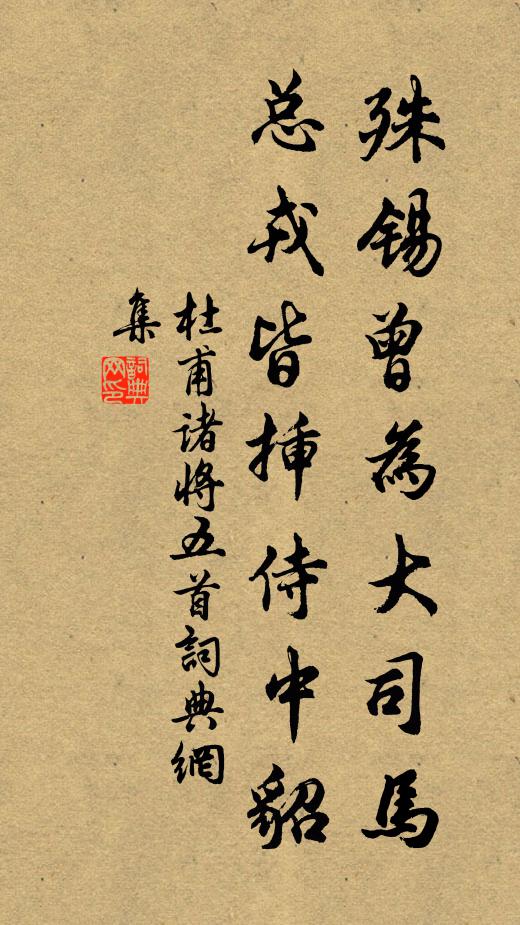 殊锡曾為大司馬
总戎皆挿侍中貂
杜甫诸将五首詞典網
集
詞典
网印